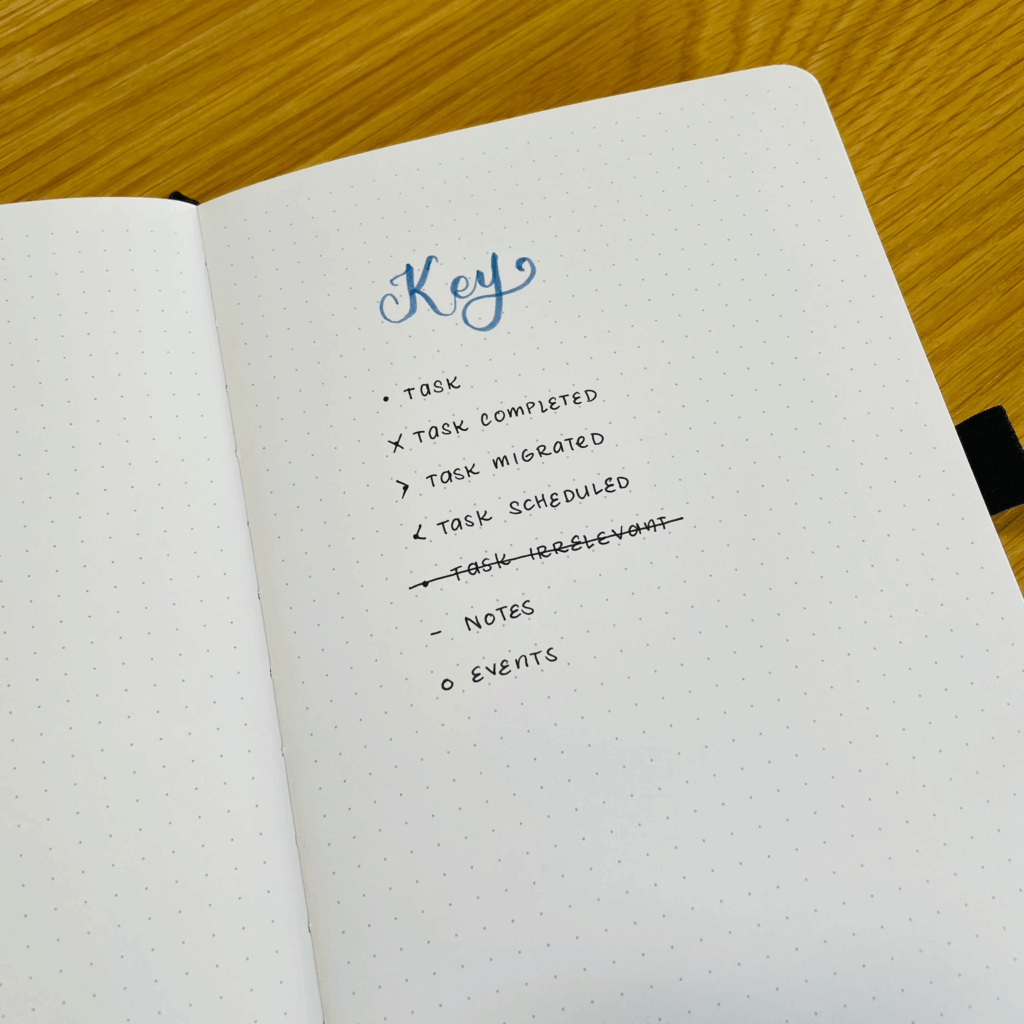 Key
• TASK
X TASK COMPLETED
> TASK MIGRATED
< TASK SCHEDULED
• TASK IRRELEVANT
– NOTES
O EVENTS